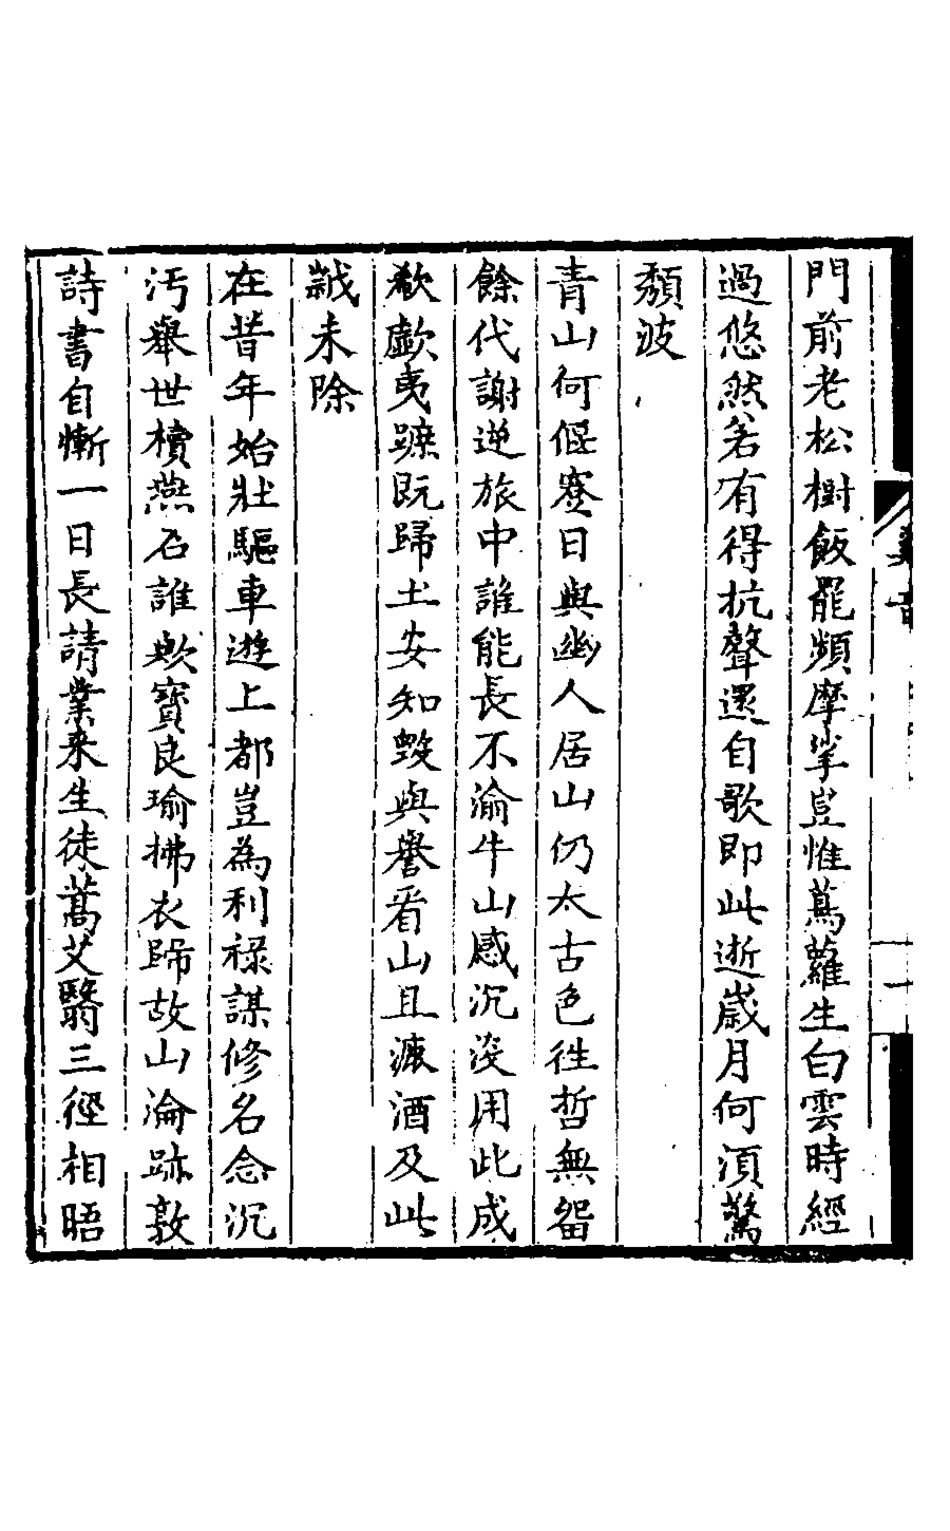 門前老松樹飯罷頻摩挲豈惟蔦蘿生白雲時經
過悠然若有得抗聲還自歌即此逝歲月何須驚
頹波
青山何偃蹇日與幽人居山仍太古色往哲無留
餘代謝逆旅中誰能長不渝牛山感沉沒用此成
欷歔夷蹠既歸土安知毀與譽看山且漉酒及此
皷未除
在昔年始壯驅車遊上都豈為利祿謀修名念沉
汚舉世櫝燕石誰歟寶良瑜拂衣歸故山淪跡敦
詩書自慚一日長請業来生徒蒿艾翳三徑相晤
一